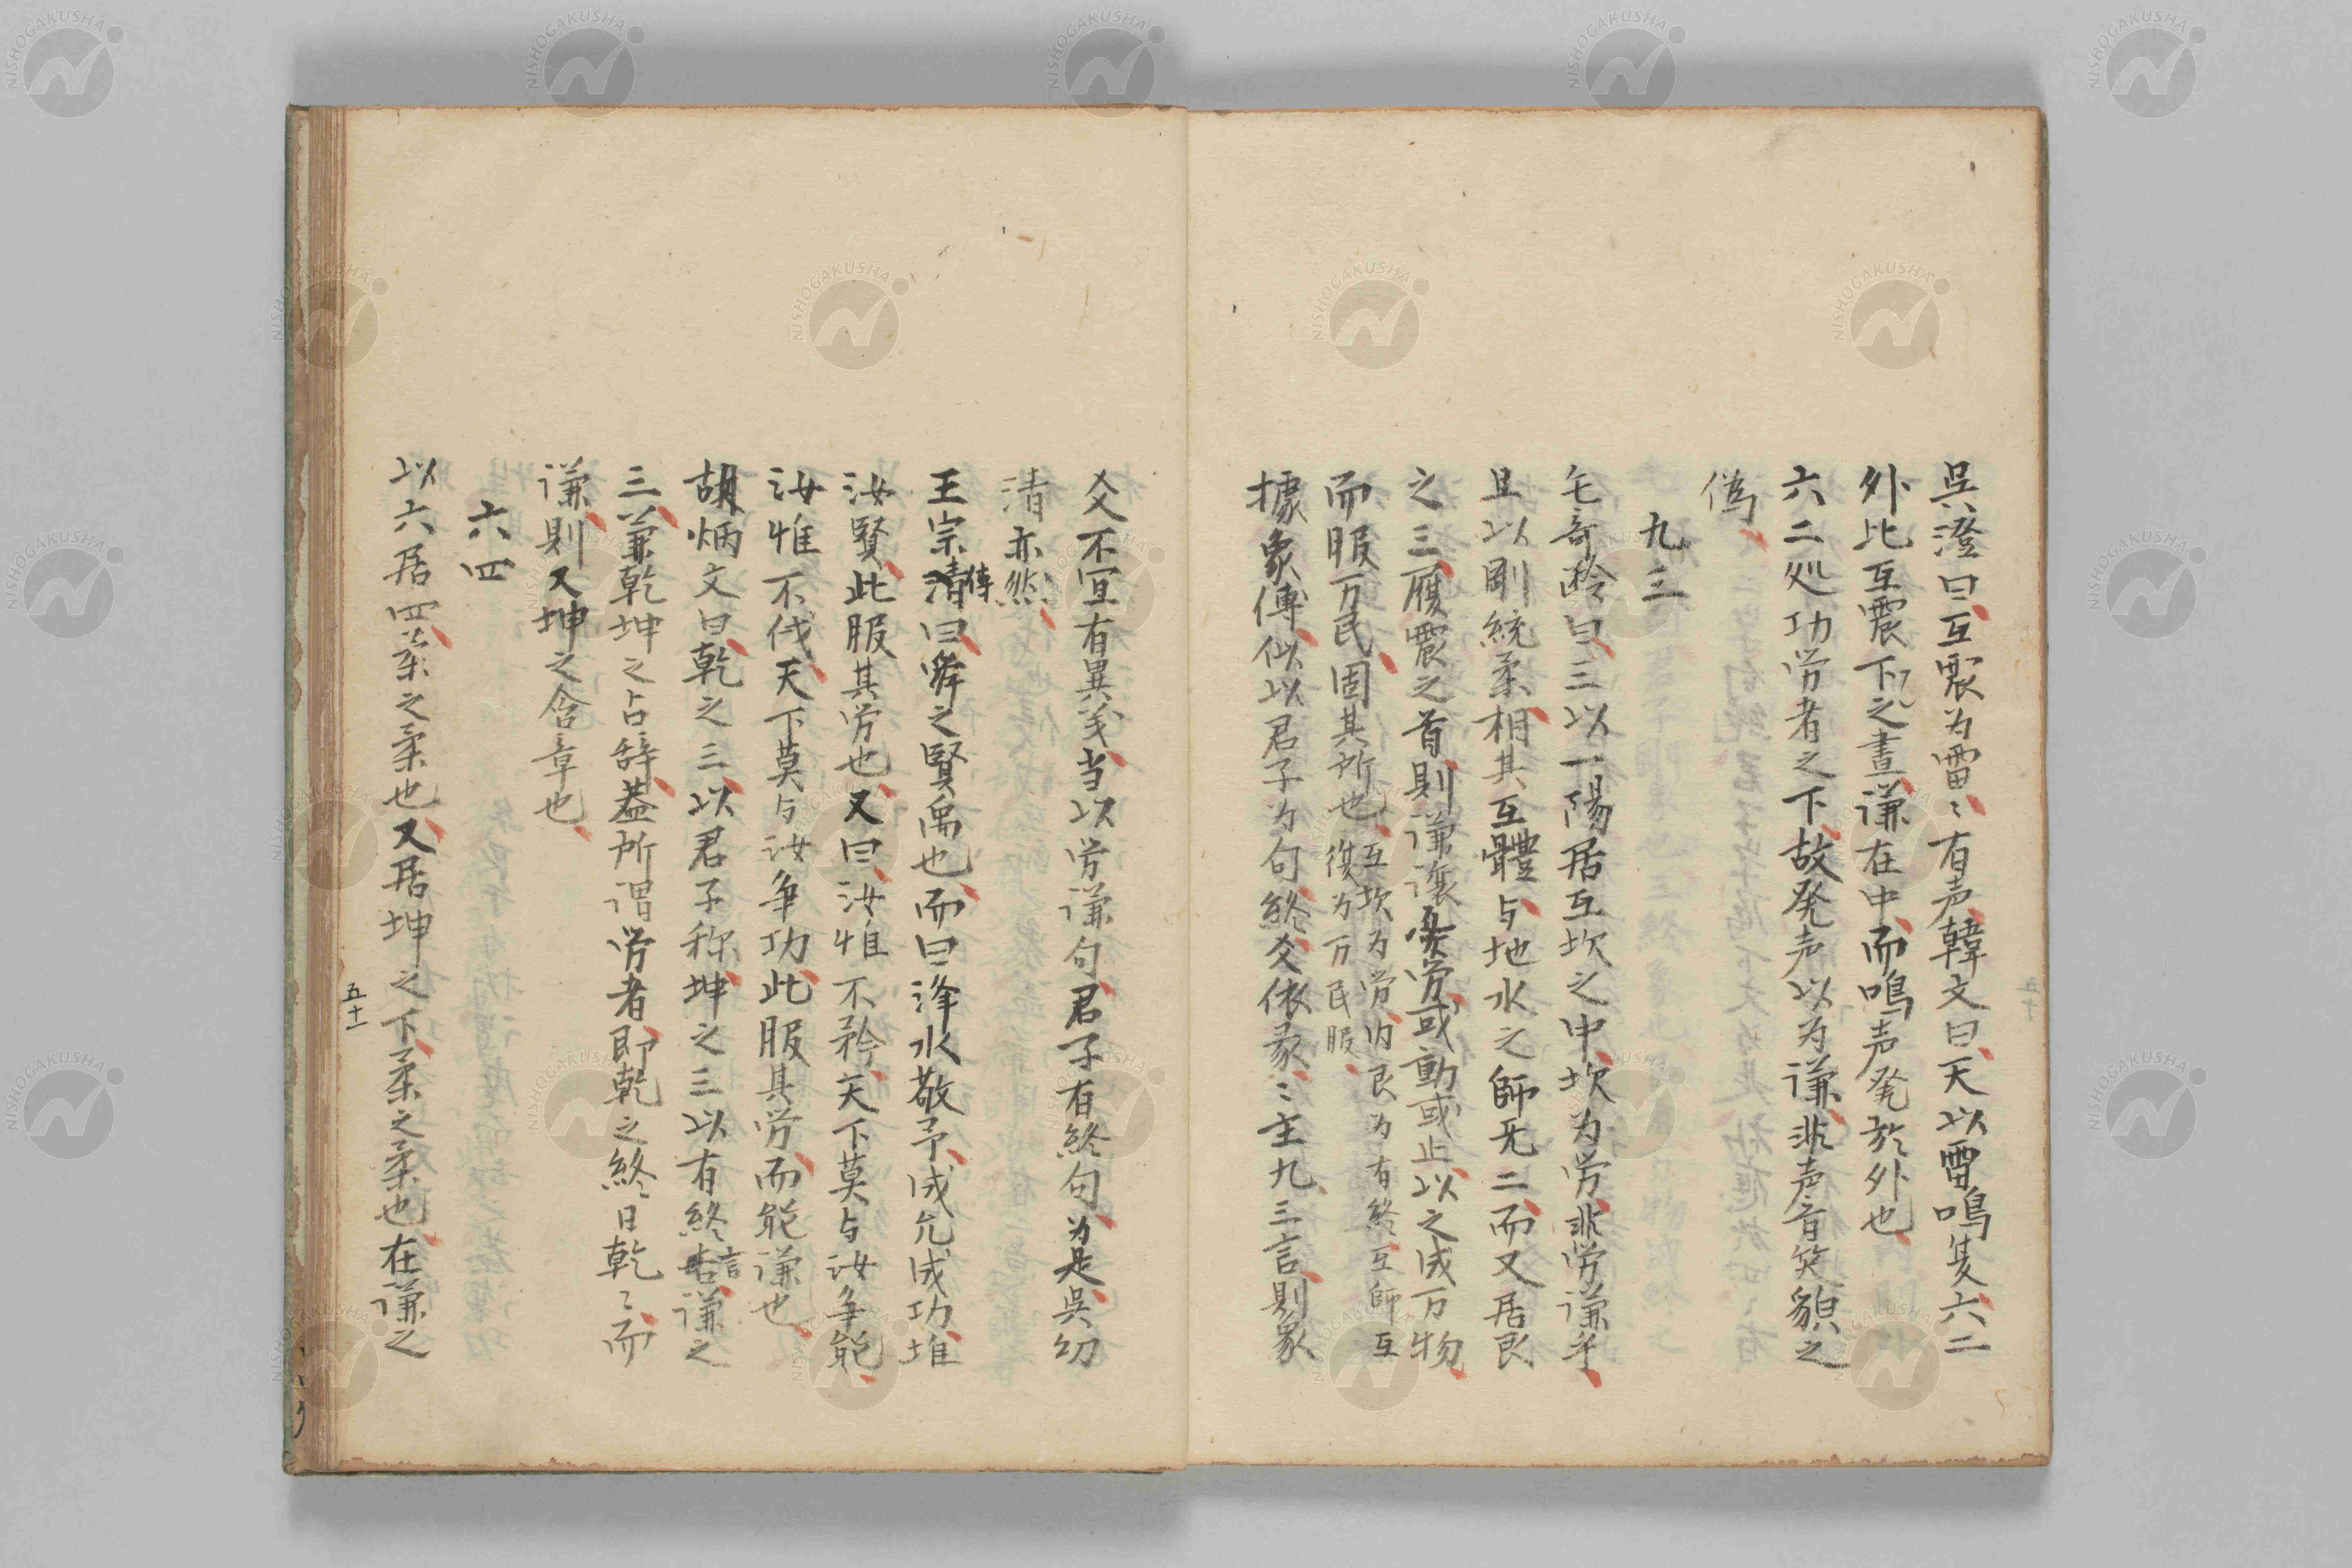 呉澄曰互震为雷〻有声韓文曰天以雷鳴夏六二
外比互震下之畫謙在中而鳴声発於外也
六二処功労者之下故発声以为謙非声音笑貌之
偽
九三
毛奇齢曰三以一陽居互坎之中坎为労非労謙乎
且以剛統柔相其互體与地水之師无二而又居艮
之三履震之首則謙讓労或動或止以之成万物
而服万民固其所也
互坎为労内艮为有終互師互
復为万民服
據象傳似以君子为句終爻依彖〻主九三言則象
爻不宜有異義当以労謙句君子有終句为是呉幼
清亦然
王宗傳曰舜之賢禹也而曰洚水敬予成允成功惟
汝賢此服其労也又曰汝惟不矜天下莫与汝争能
汝惟不伐天下莫与汝争功此服其労而能謙也
胡炳文曰乾之三以君子称坤之三以有終言謙之
三兼乾坤之占辞葢所謂労者即乾之終日乾〻而
謙則又坤之含章也
六四
以六居四柔之柔也又居坤之下柔之柔也在謙之
五十一
NISHOGAKUSHA